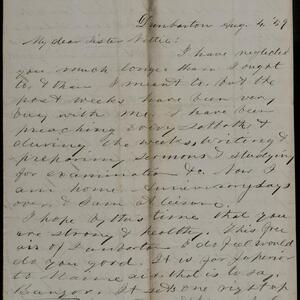 Dunbarton Aug. 4, '59
My dear Sister Nettie:
I have neglected
you much longer than I ought
to, & than I meant to, but the
past weeks have been very
busy with me. I have been
preaching every sabbath &
during the weeks, writing &
preparing sermons & studying
for examination &c. Now I
am home Anniversary days
over & I am at leisure.
I hope by this time that you
are strong & healthy. This free
air of Dunbarton I do feel would
do you good. It is far superior
to Maine air that is to say,
Bangor. It sets one right up